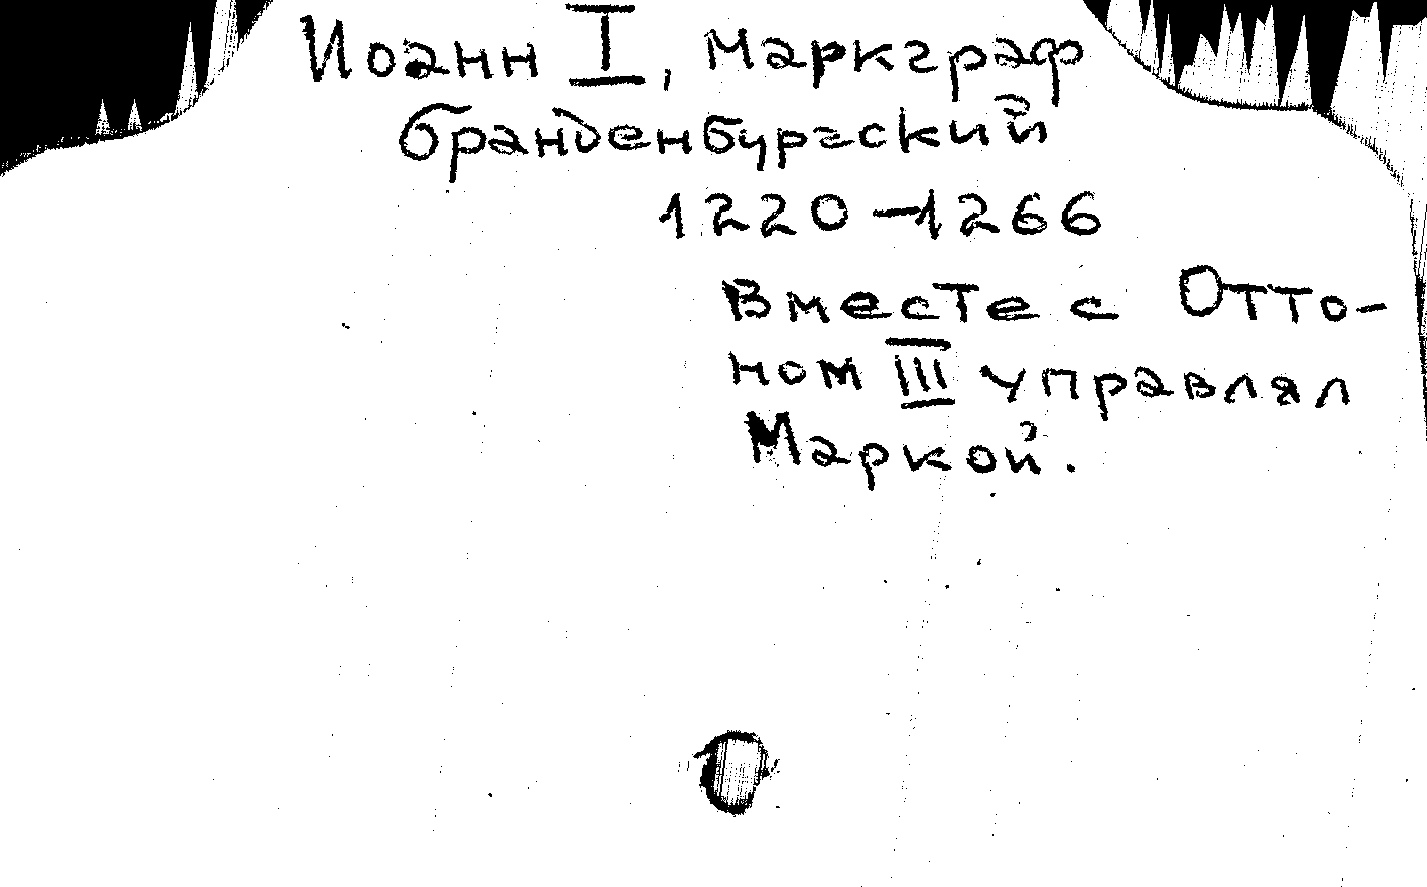 Иоанн I, маркграф
бранденбургский
1220–1266
Вместе с Отто-
ном III управлял
Маркой.